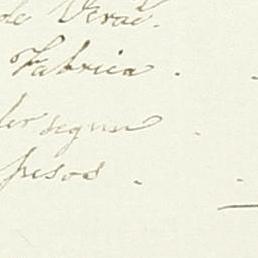 de Verac.
Fabrica .
ler segun .
pesos .